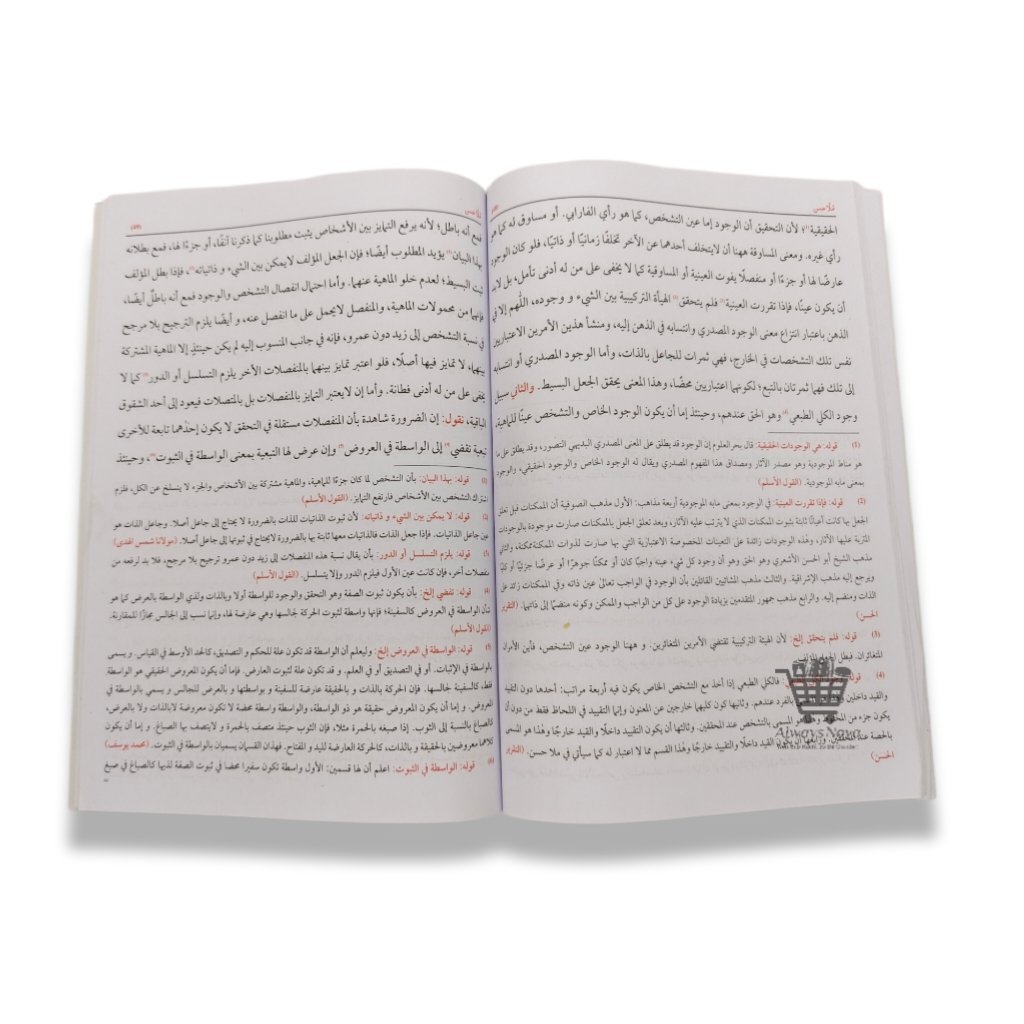 ملا حسن
الحقيقية(١)؛ لأن التحقيق أن الوجود إما عين التشخص، كما هو رأي الفارابي. أو مساوق له كما هو
رأي غيره. ومعنى المساوقة ههنا أن لايتخلف أحدهما عن الآخر تخلفًا زمانيًا أو ذاتيًا، فلو كان الوجود
عارضًا لها أو جزءًا أو منفصلًا يفوت العينية أو المساوقية كما لا يخفى على من له أدنى تأمل، بل لابد
أن يكون عينًا، فإذا تقررت العينية(٢) فلم يتحقق(٣) الهيأة التركيبية بين الشيء و وجوده، اللّٰهم إلا في
الذهن باعتبار انتزاع معنى الوجود المصدري وانتسابه في الذهن إليه، ومنشأ هذين الأمرين الاعتباريين
نفس تلك التشخصات في الخارج، فهي ثمرات للجاعل بالذات، وأما الوجود المصدري أو انتسابه
إلى تلك فهما ثمرتان بالتبع؛ لكونهما اعتباريين محضًا، وهذا المعنى يحقق الجعل البسيط. والثاني سبيل
وجود الكلي الطبعي(٤) وهو الحق عندهم، وحينئذ إما أن يكون الوجود الخاص والتشخص عينًا للماهية،
(1) قوله: هي الوجودات الحقيقية: قال بحر العلوم إن الوجود قد يطلق على المعنى المصدري البديهي التصور، وقد يطلق على ما
هو مناط الموجودية وهو مصدر الآثار ومصداق هذا المفهوم المصدري ويقال له الوجود الخاص والوجود الحقيقي، والوجود
بمعنى مابه الموجودية. (القول الأسلم)
(2) قوله: فإذا تقررت العينية: في الوجود بمعنى مابه الموجودية أربعة مذاهب: الأول مذهب الصوفية أن الممكنات قبل تعلق
الجعل بها كانت أعيانًا ثابتة بثبوت الممكنات الذي لا يترتب عليه الآثار، وبعد تعلق الجعل بالممكنات صارت موجودة بالوجودات
المترتبة عليها الآثار، وهذه الوجودات زائدة على التعينات المخصوصة الاعتبارية التي بها صارت لذوات الممكنة ممكنة، والثاني
مذهب الشيخ أبو الحسن الأشعري وهو الحق وهو أن وجود كل شيء عينه واجبًا كان أو ممكنًا جوهرًا أو عرضًا جزئيًا أو كليًا
ويرجع إليه مذهب الإشراقية. والثالث مذهب المشائين القائلين بأن الوجود في الواجب تعالى عين ذاته وفي الممكنات زائد على
الذات ومنضم إليه. والرابع مذهب جمهور المتقدمين بزيادة الوجود على كل من الواجب والممكن وكونه منضمًا إلى ذاتهما. (التقرير
الحسن)
(3) قوله: فلم يتحقق إلخ: لأن الهيئة التركيبية تقتضي الأمرين المتغائرين. و ههنا الوجود عين التشخص، فأين الأمران
المتغائران. فبطل الجعل المؤلف.
(4) فالكلي الطبعي إذا أخذ مع التشخص الخاص يكون فيه أربعة مراتب: أحدها دون التقييد
والقيد داخلين بالفرد عندهم. وثانيها كون كليهما خارجين عن المعنون وإنما التقييد في اللحاظ فقط من دون أن
يكون جزء من المسمى بالتشخص عند المحققين. وثالثها أن يكون التقييد داخلًا والقيد خارجًا وهذا هو المسمى
بالحصة عند المحققين. ورابعها أن يكون القيد داخلًا والتقييد خارجًا وهذا القسم مما لا اعتبار له كما سيأتي في ملا حسن. (التقرير
الحسن)
AlwaysNaya
ملا حسن
فمع أنه باطل؛ لأنه يرفع التمايز بين الأشخاص يثبت مطلوبنا كما ذكرنا آنفًا، أو جزءًا لها، فمع بطلانه
بهذا البيان(١) يؤيد المطلوب أيضًا؛ فإن الجعل المؤلف لا يمكن بين الشيء و ذاتياته(٢)، فإذا بطل المؤلف
ثبت البسيط؛ لعدم خلو الماهية عنهما. وأما احتمال انفصال التشخص والوجود فمع أنه باطلٌ أيضًا،
فإنهما من محمولات الماهية، والمنفصل لايحمل على ما انفصل عنه، و أيضًا يلزم الترجيح بلا مرجح
في نسبة التشخص إلى زيد دون عمرو، فإنه في جانب المنسوب إليه لم يكن حينئذٍ إلا الماهية المشتركة
بينهما، لا تمايز فيها أصلًا، فلو اعتبر تمايز بينهما بالمنفصلات الآخر يلزم التسلسل أو الدور(٣) كما لا
يخفى على من له أدنى فطانة. وأما إن لايعتبر التمايز بالمنفصلات بل بالمتصلات فيعود إلى أحد الشقوق
الباقية، نقول: إن الضرورة شاهدة بأن المنفصلات مستقلة في التحقق لا يكون إحداهما تابعة للأخرى
تبعية تفضي(٤) إلى الواسطة في العروض(٥) وإن عرض لها التبعية بمعنى الواسطة في الثبوت(٦)، وحينئذ
(1) قوله: بهذا البيان: بأن التشخص لما كان جزءًا للماهية، والماهية مشتركة بين الأشخاص والجزء لا ينسلخ عن الكل، فلزم
اشتراك التشخص بين الأشخاص فارتفع التمايز. (القول الأسلم)
(2) قوله: لا يمكن بين الشيء و ذاتياته: لأن ثبوت الذاتيات للذات بالضرورة لا يحتاج إلى جاعل أصلا. وجاعل الذات هو
عين جاعل الذاتيات. فإذا جعل الذات فالذاتيات معها ثابتة بها بالضرورة لايحتاج في ثبوتها إلى جاعل أصلا. (مولانا شمس الهدى)
(3) قوله: يلزم التسلسل أو الدور: بأن يقال نسبة هذه المنفصلات إلى زيد دون عمرو ترجيح بلا مرجح، فلا بد لرفعه من
منفصلات آخر، فإن كانت عين الأول فيلزم الدور وإلا يتسلسل. (القول الأسلم)
(4) قوله: تفضي إلخ: بأن يكون ثبوت الصفة وهو التحقق والوجود للواسطة أولا وبالذات ولذي الواسطة بالعرض كما هو
شأن الواسطة في العروض كالسفينة؛ فإنها واسطة لثبوت الحركة لجالسها وهي عارضة لها، وإنما نسب إلى الجالس مجازًا للمقارنة.
(القول الأسلم)
(5) قوله: الواسطة في العروض إلخ: وليعلم أن الواسطة قد تكون علة للحكم و التصديق، كالحد الأوسط في القياس. و يسمى
بالواسطة في الإثبات. أو في التصديق أو في العلم. و قد تكون علة لثبوت العارض. فإما أن يكون المعروض الحقيقي هو الواسطة
فقط، كالسفينة لجالسها. فإن الحركة بالذات و بالحقيقة عارضة للسفينة و بواسطتها و بالعرض للجالس و يسمى بالواسطة في
العروض. و إما أن يكون المعروض حقيقة هو ذو الواسطة، والواسطة واسطة محضة لا تكون معروضة لابالذات ولا بالعرض،
كالصباغ بالنسبة إلى الثوب. إذا صبغه بالحمرة مثلا، فإن الثوب حينئذ متصف بالحمرة و لايتصف بها الصباغ. و إما أن يكون
كلاهما معروضين بالحقيقة و بالذات، كالحركة العارضة لليد و المفتاح. فهذان القسمان يسميان بالواسطة في الثبوت. (محمد يوسف)
(6) قوله: الواسطة في الثبوت: اعلم أن لها قسمين: الأول واسطة تكون سفيرا محضا في ثبوت الصفة لذيها كالصباغ في صبغ